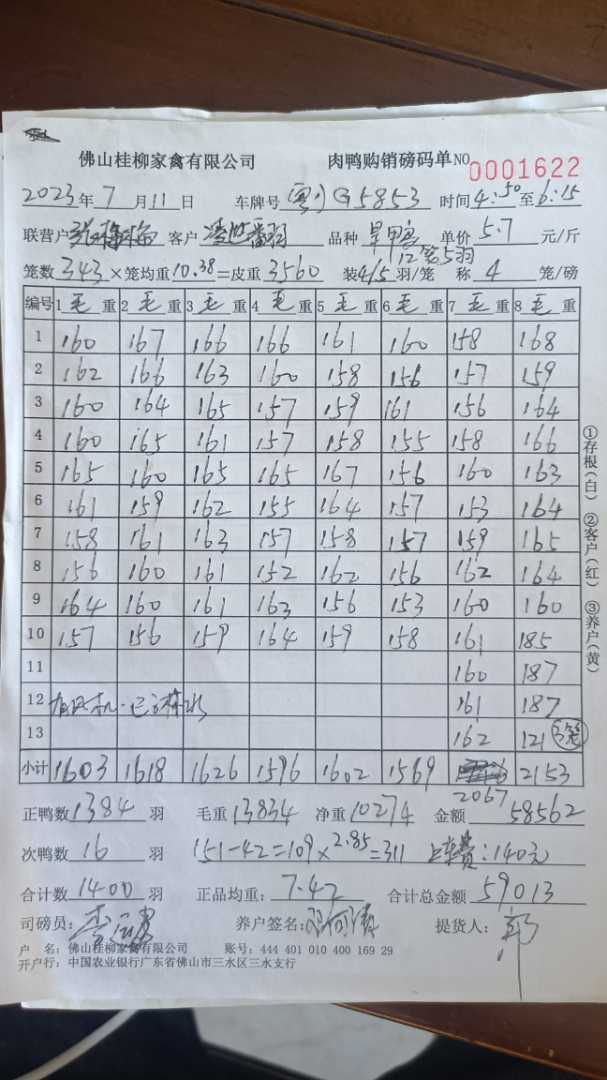 佛山桂柳家禽有限公司 肉鸭购销磅码单NO 0001622
2023年7月11日 车牌号 粤G5853 时间4:50至6:15
联营户 客户 品种 旱甲鸭 单价5.7元/斤
12笼5羽
笼数343×笼均重10.38=皮重3560 装4/5羽/笼 称4笼/磅
编号 1毛重 2毛重 3毛重 4毛重 5毛重 6毛重 7毛重 8毛重
1 160 167 166 166 161 160 158 168
2 162 166 163 160 158 156 157 159
3 160 164 165 157 159 161 156 164
4 160 165 161 157 158 155 158 166
5 165 160 165 165 167 156 160 163
6 161 159 162 155 164 157 153 164
7 158 161 163 157 158 157 159 165
8 156 160 161 152 162 156 162 164
9 164 160 161 163 156 153 160 160
10 157 156 159 164 159 158 161 185
11 160 187
12 161 187
13 162 121 3笼
小计 1603 1618 1626 1596 1602 1569 2153
2067
正鸭数1384羽 毛重13834 净重10274 金额58562
次鸭数16羽 151-42=109×2.85=311 上车费:140元
合计数1400羽 正品均重:7.42 合计总金额59013
司磅员: 养户签名: 提货人:郭
户 名:佛山桂柳家禽有限公司 账号:444 401 010 400 169 29
开户行:中国农业银行广东省佛山市三水区三水支行
①存根(白) ②客户(红) ③养户(黄)